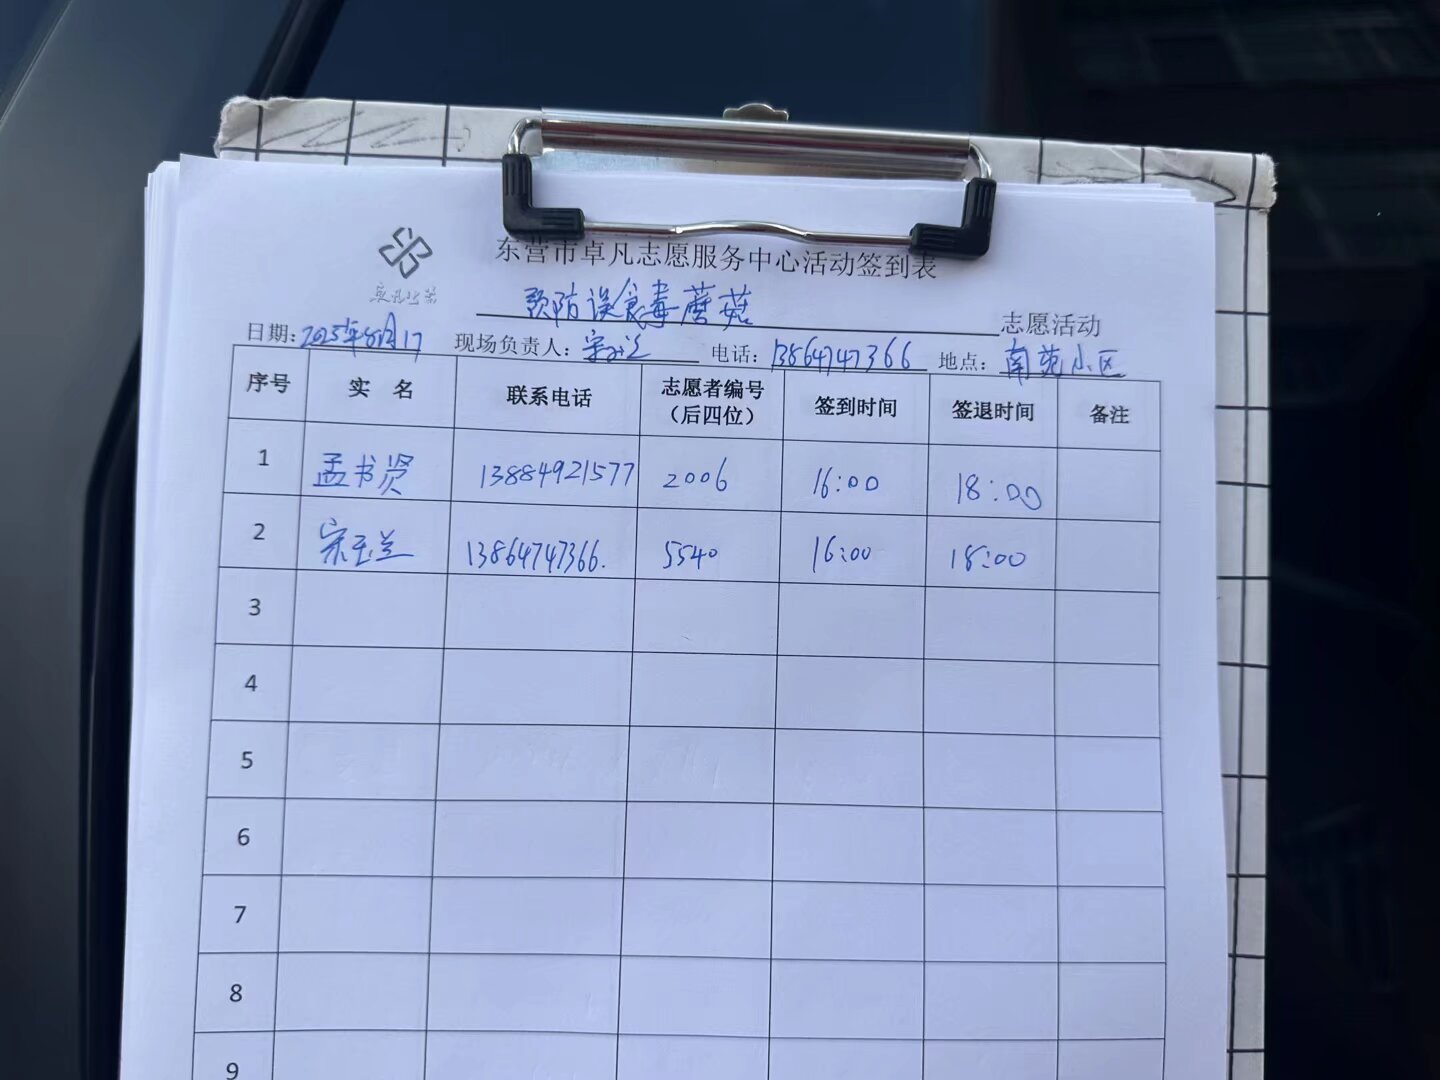 东营市卓凡志愿服务中心活动签到表
卓凡公益
预防误食毒蘑菇 志愿活动
日期: 2025年8月17 现场负责人: 宋玉兰 电话: 13864747366 地点: 南苑小区
序号 实 名 联系电话 志愿者编号（后四位） 签到时间 签退时间 备注
1 孟书贤 13884921577 2006 16:00 18:00
2 宋玉兰 13864747366. 5540 16:00 18:00
3
4
5
6
7
8
9